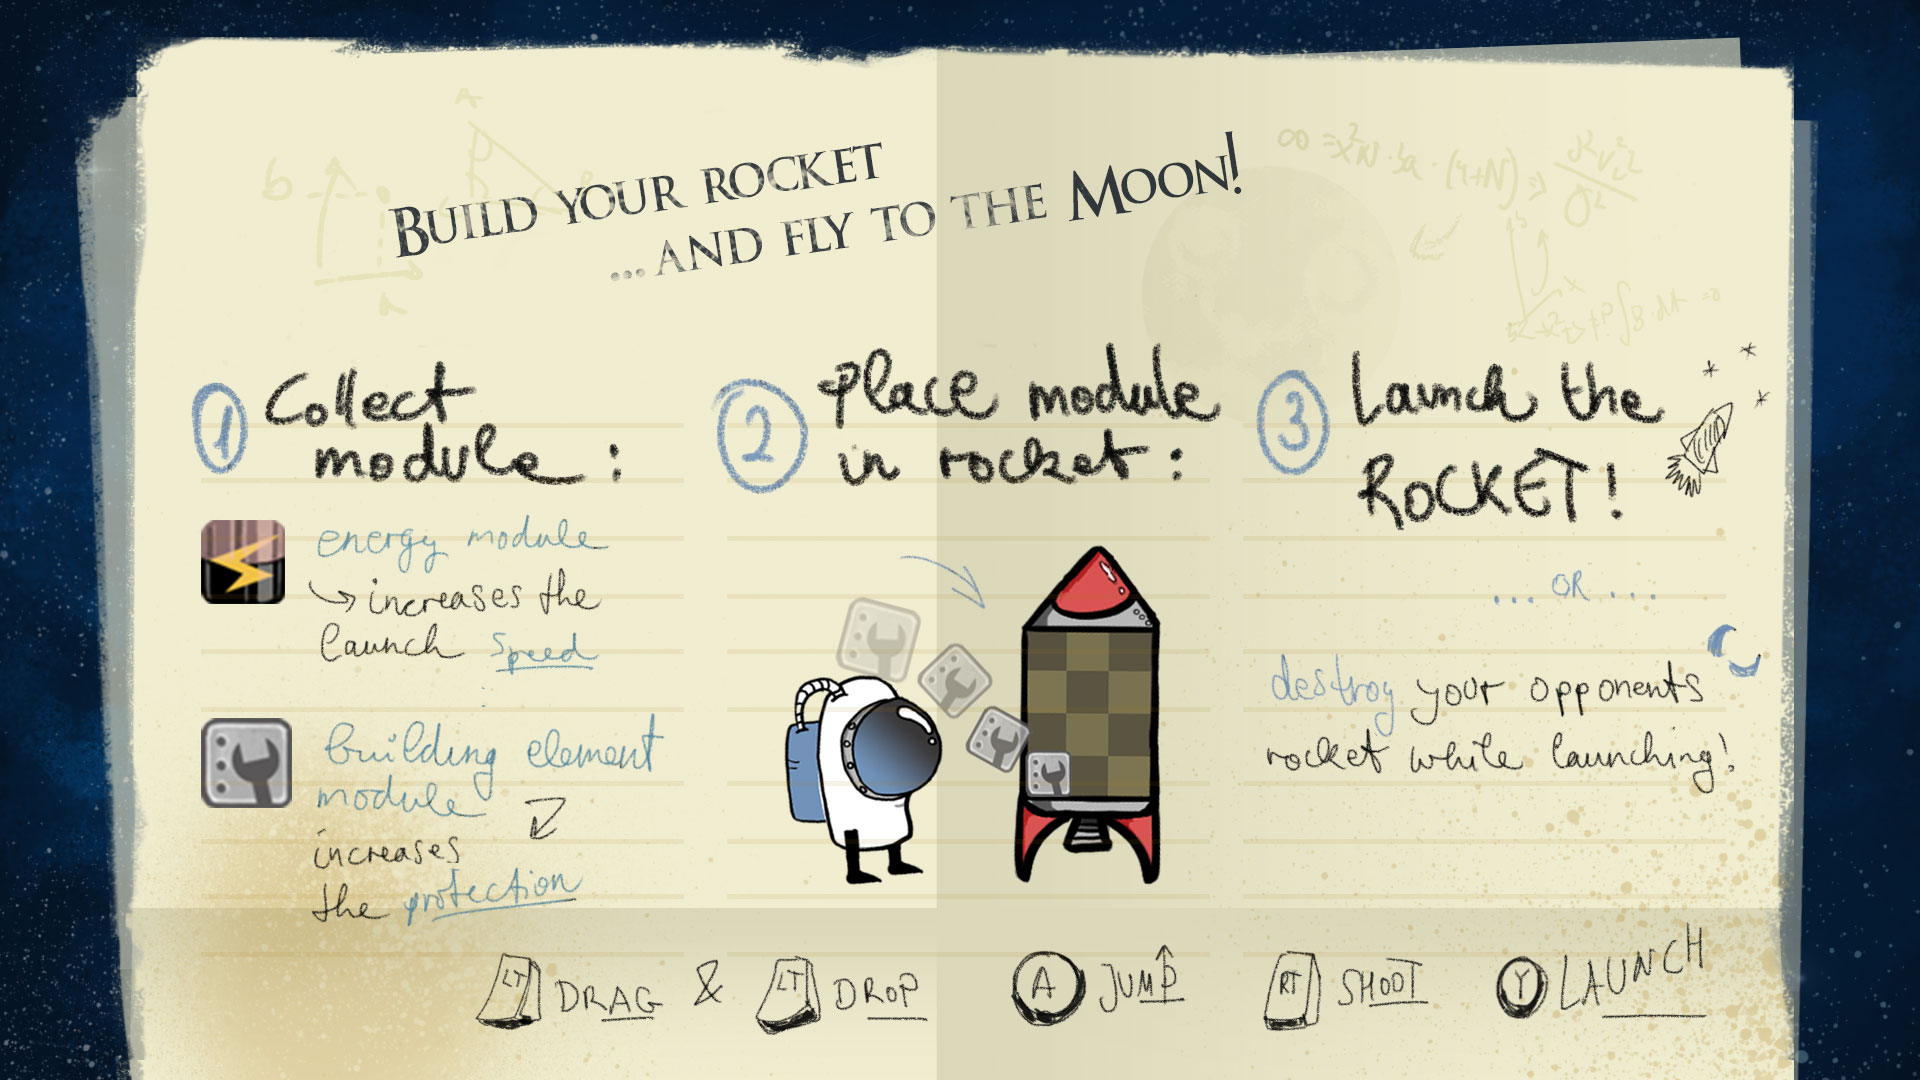 Build your rocket
...and fly to the Moon!
1 Collect
module:
energy module
increases the
launch speed
building element
module
increases
the protection
2 Place module
in rocket:
3 Launch the
ROCKET!
... OR ...
destroy your opponents
rocket while launching!
LT DRAG & LT DROP A JUMP RT SHOOT Y LAUNCH